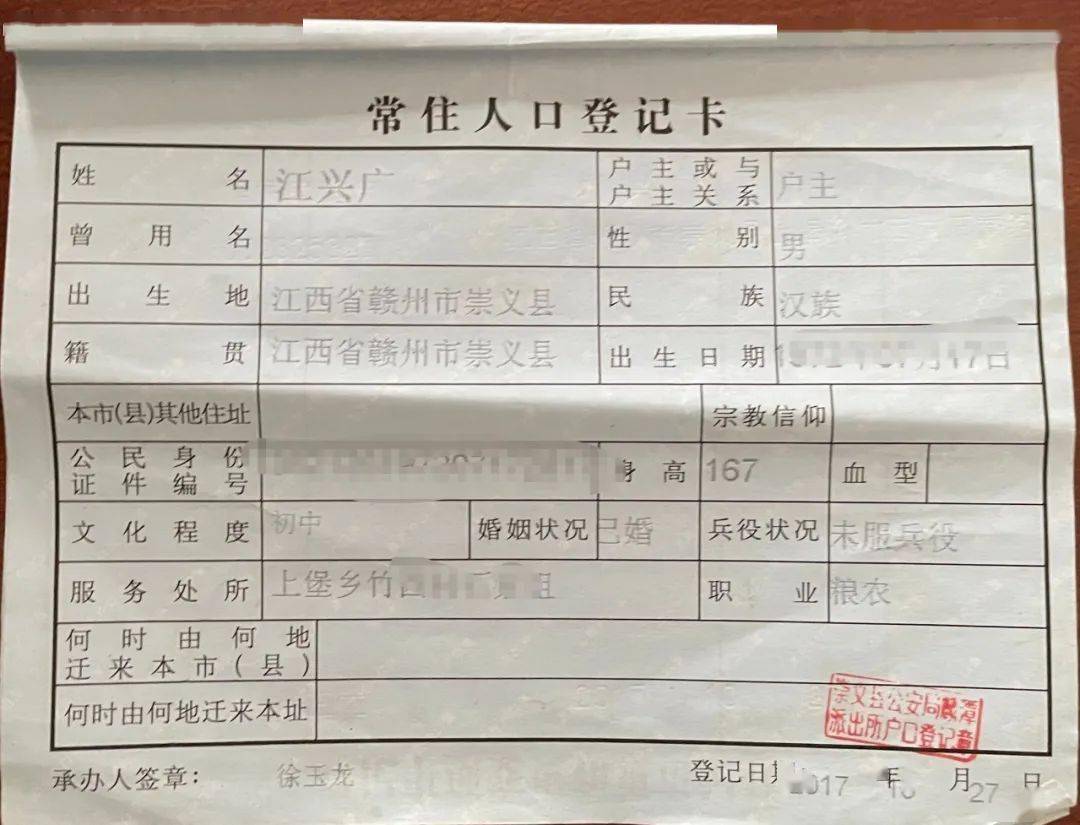 常住人口登记卡
姓名 江兴广 户主或与户主关系 户主
曾用名 性别 男
出生地 江西省赣州市崇义县 民族 汉族
籍贯 江西省赣州市崇义县 出生日期 17日
本市(县)其他住址 宗教信仰
公民身份证件编号 身高 167 血型
文化程度 初中 婚姻状况 已婚 兵役状况 未服兵役
服务处所 上堡乡竹 组 职业 粮农
何时由何地迁来本市(县)
何时由何地迁来本址
崇义县公安局
派出所户口登记章
承办人签章: 徐玉龙 登记日期 2017 年 月 27 日